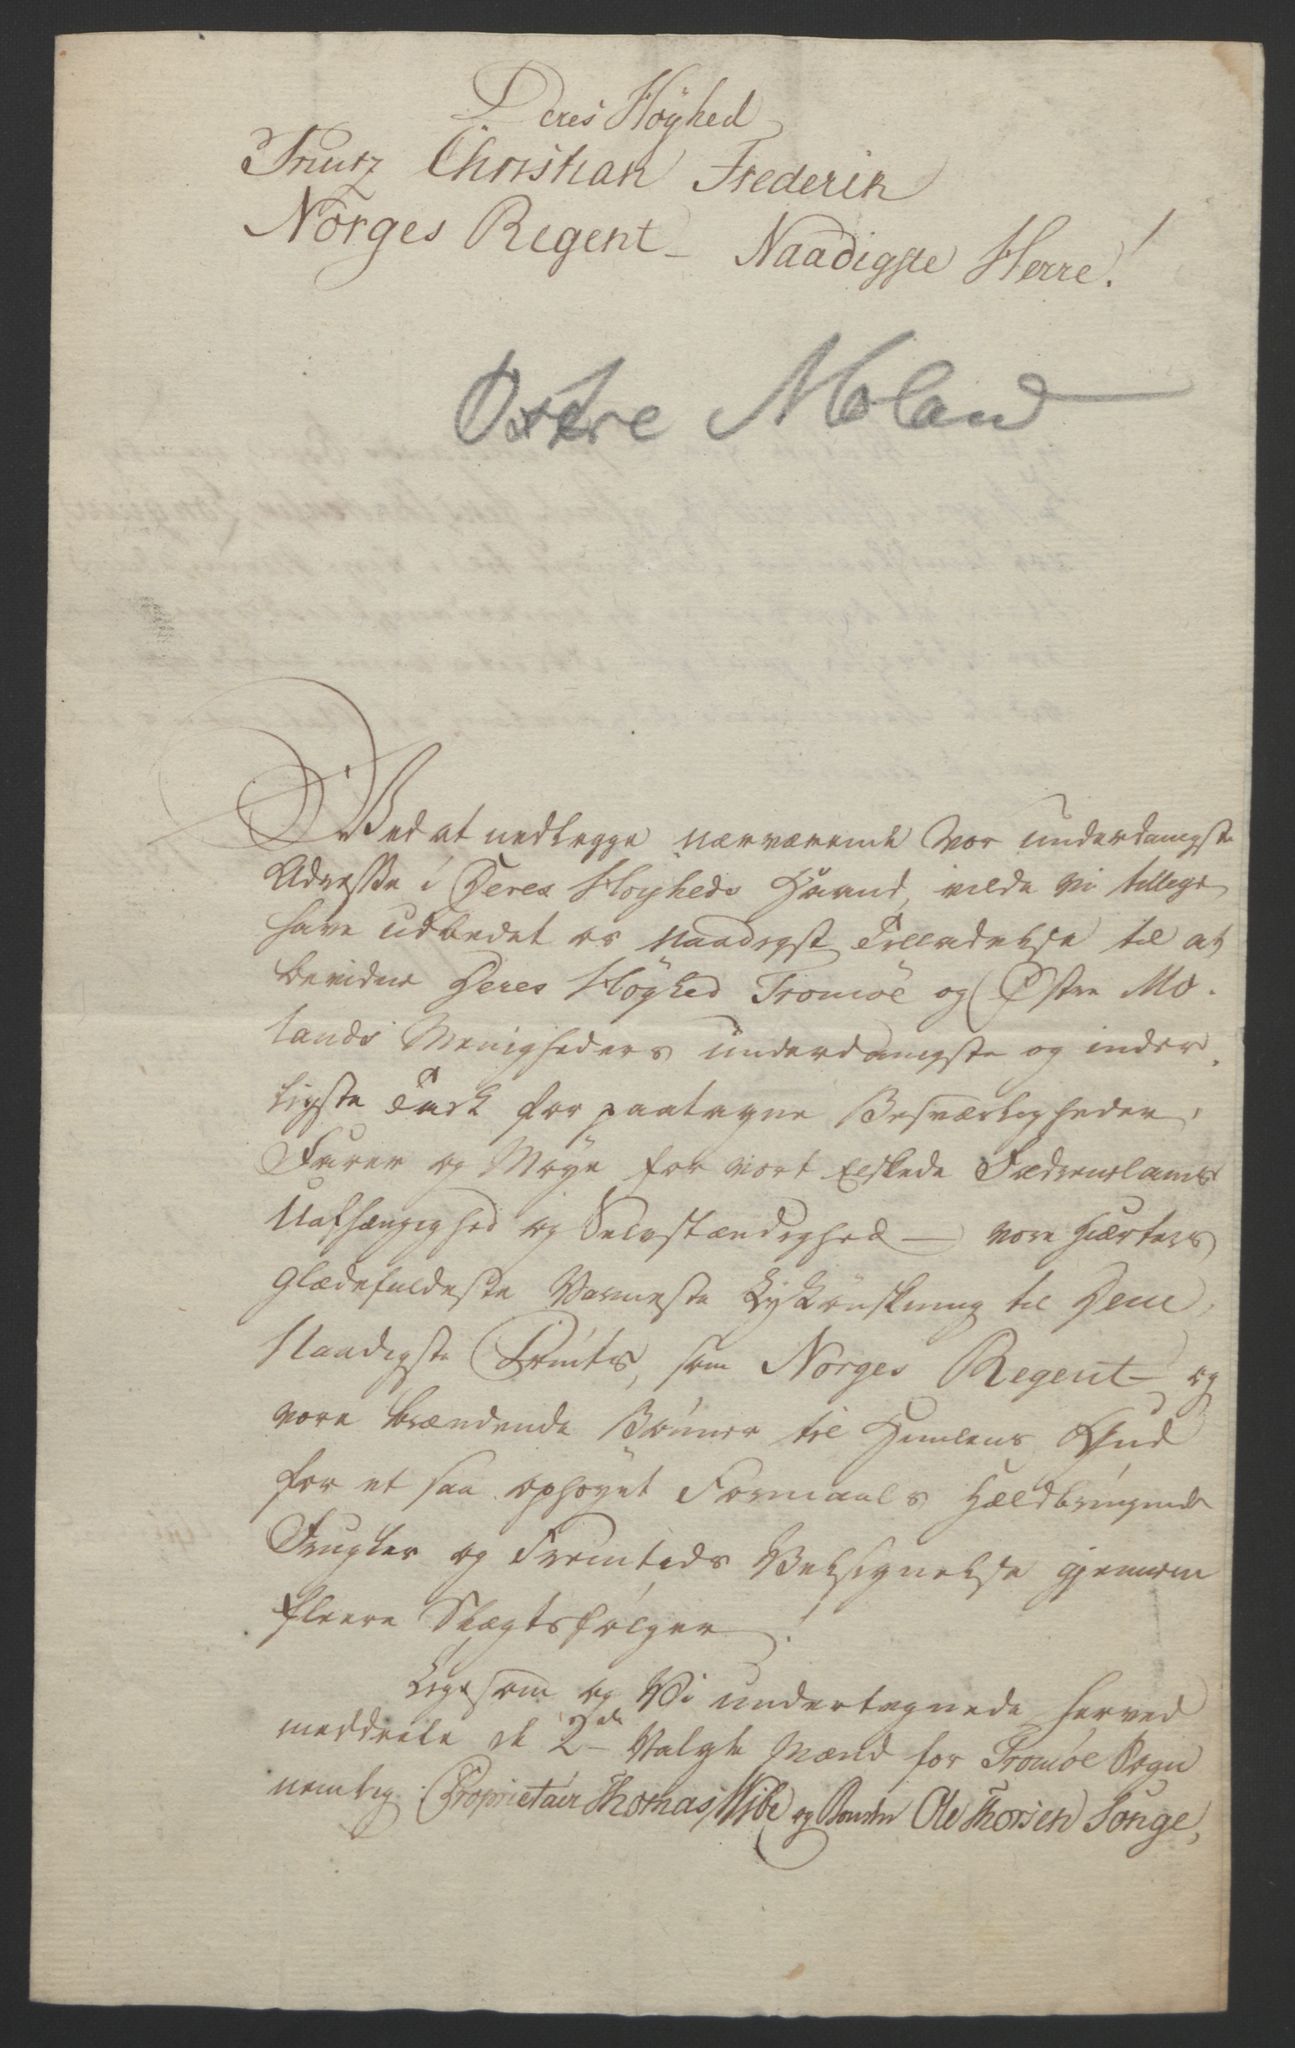 Deres Höyhed
Printz Christian Frederik
Norges Regent – Naadigste Herre!
Østre Moland
Ved at nedlegge nærværende vor underdanigste
Adresse i Deres Höyheds Haand, vilde vi tillige
have udbedet os naadigst Tilladelse til at
bevidne Deres Höyhed Tromöe og Østre Mo-
lands Menigheders underdanigste og inder-
ligste Tack for paatagne Besværligheder,
Farer og Möye for vort elskede Fædrenelands
Uafhængighed og Selvstændighed – vore Hierters
Glædefuldeste Varmeste Lykönskning til Dem,
Naadigste Printz, som Norges Regent – og
vore brændende Bönner til Himlens Gud
for et saa ophöyet Formaals Heldbringende
Frugter og Fremtids Velsignelse gjennem
fleere Slægtsfölger.
Ligesom og Vi undertegnede herved
meddeele de 2de Valgte Mænd for Tromöe Sogn
nemlig Proprietair Thomas Vibe og Bonden Ole Thorsen Songe,